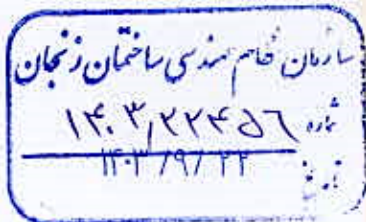 سازمان نظام مهندسی ساختمان زنجان
شماره ۱۴۰۳/۲۲۴۵۶
تاریخ ۱۴۰۳/۹/۲۲